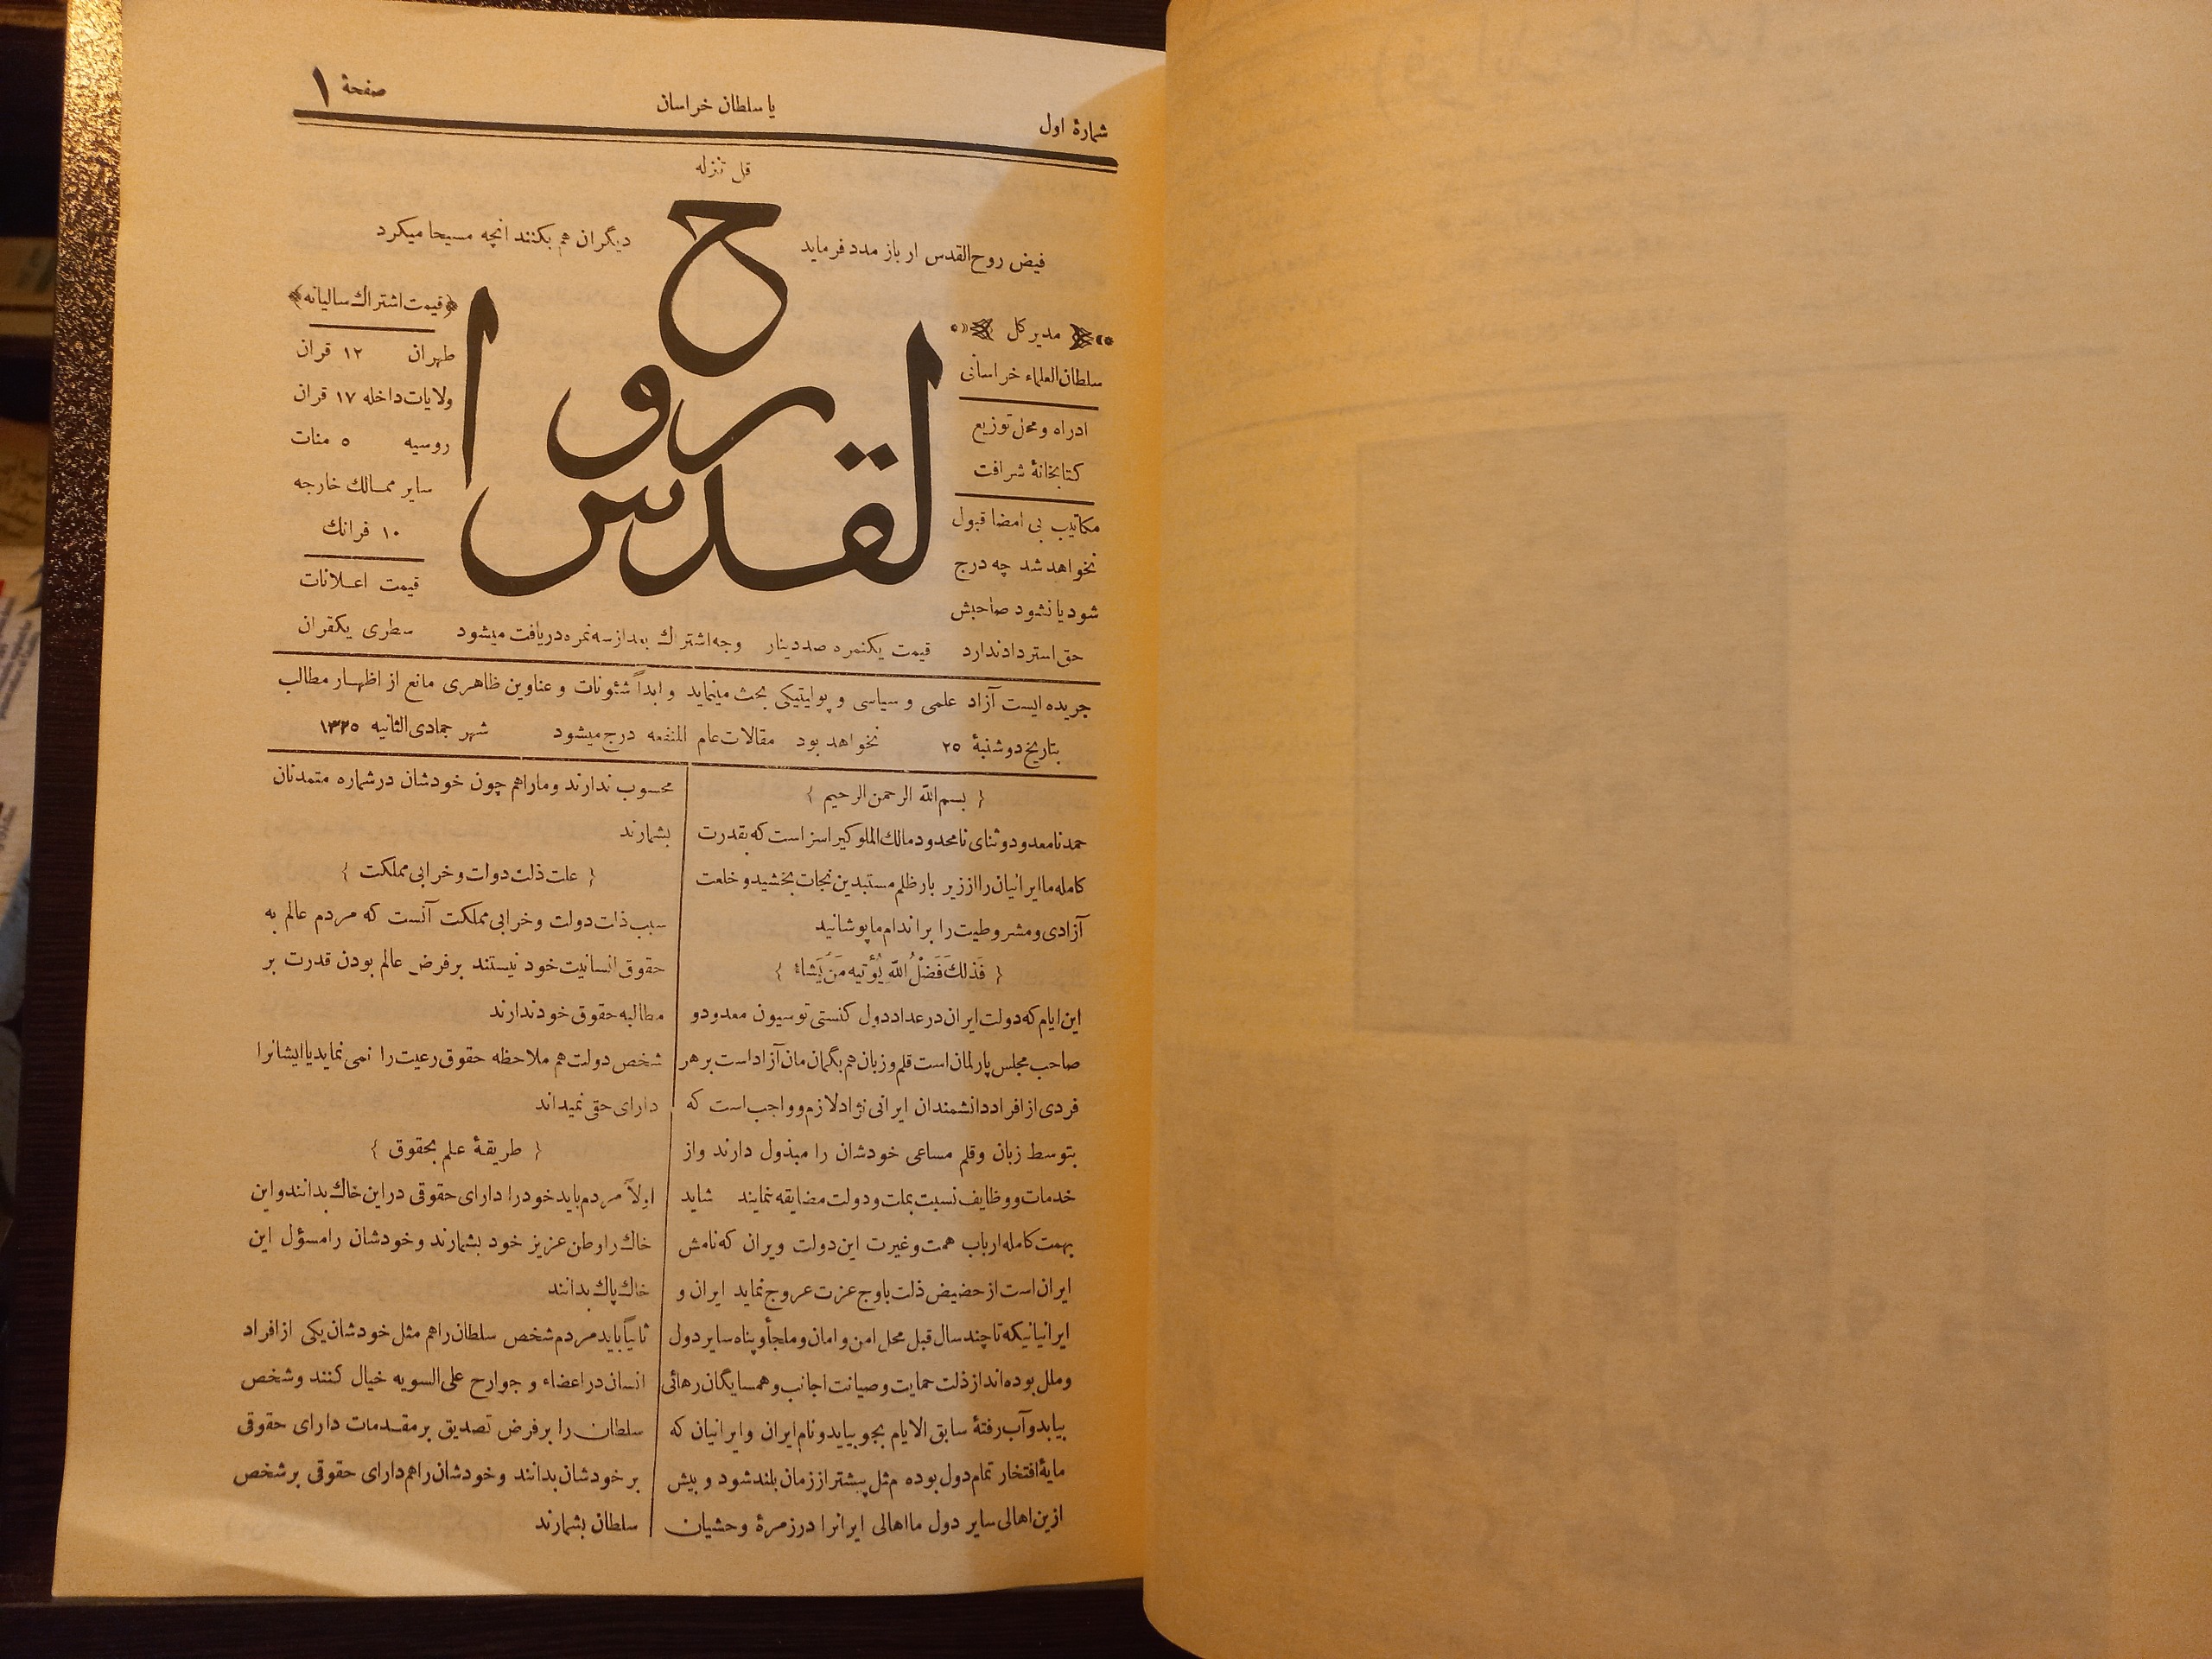 شمارهٔ اول
یا سلطان خراسان
صفحهٔ ۱
قل نزله
روح القدس
فیض روح‌القدس ار باز مدد فرماید
دیگران هم بکنند انچه مسیحا میکرد
مدیر کل
سلطان‌العلماء خراسانی
ادراه و محل توزیع
کتابخانهٔ شرافت
مکاتیب بی امضا قبول
نخواهد شد چه درج
شود یا نشود صاحبش
حق استرداد ندارد
قیمت یکنمره صد دینار
وجه اشتراك بعد از سه نمره دریافت میشود
﴿قیمت اشتراك سالیانه﴾
طهران ۱۲ قران
ولایات داخله ۱۷ قران
روسیه ۵ منات
سایر ممالك خارجه
۱۰ فرانك
قیمت اعلانات
سطری یکقران
جریده ایست آزاد علمی و سیاسی و پولیتیکی بحث مینماید و ابداً شئونات و عناوین ظاهری مانع از اظهار مطالب
نخواهد بود مقالات عام المنفعه درج میشود
بتاریخ دوشنبهٔ ۲۵ شهر جمادی‌الثانیه ۱۳۲۵
{ بسم الله الرحمن الرحیم }
حمد نامعدود و ثنای نامحدود مالك الملوکیرا سزاست که بقدرت
کامله ما ایرانیان را از زیر بار ظلم مستبدین نجات بخشید و خلعت
آزادی و مشروطیت را بر اندام ما پوشانید
{ فَذلكَ فَضْلُ اللّه یُؤتیه مَنْ یَشاءُ }
این ایام که دولت ایران در عداد دول کنستی توسیون معدود و
صاحب مجلس پارلمان است قلم و زبان هم بگمان مان آزاد است بر هر
فردی از افراد دانشمندان ایرانی نژاد لازم و واجب است که
بتوسط زبان و قلم مساعی خودشان را مبذول دارند و از
خدمات و وظایف نسبت بملت و دولت مضایقه ننمایند شاید
بهمت کامله ارباب همت و غیرت این دولت ویران که نامش
ایران است از حضیض ذلت باوج عزت عروج نماید ایران و
ایرانیانیکه تا چند سال قبل محل امن و امان و ملجأ و پناه سایر دول
و ملل بوده‌اند از ذلت حمایت و صیانت اجانب و همسایگان رهائی
بیابد و آب رفتهٔ سابق الایام بجو بیاید و نام ایران و ایرانیان که
مایهٔ افتخار تمام دول بوده مثل پیشتر از زمان بلند شود و بیش
ازین اهالی سایر دول ما اهالی ایرانرا در زمرهٔ وحشیان
محسوب ندارند و ما را هم چون خودشان در شماره متمدنان
بشمارند
{ علت ذلت دولت و خرابی مملکت }
سبب ذلت دولت و خرابی مملکت آنست که مردم عالم به
حقوق انسانیت خود نیستند بر فرض عالم بودن قدرت بر
مطالبه حقوق خود ندارند
شخص دولت هم ملاحظه حقوق رعیت را نمی نماید یا ایشانرا
دارای حقی نمیداند
{ طریقهٔ علم بحقوق }
اولاً مردم باید خود را دارای حقوقی در این خاك بدانند و این
خاك را وطن عزیز خود بشمارند و خودشان را مسؤل این
خاك پاك بدانند
ثانیاً باید مردم شخص سلطان را هم مثل خودشان یکی از افراد
انسان در اعضاء و جوارح علی السویه خیال کنند و شخص
سلطان را بر فرض تصدیق بر مقدمات دارای حقوقی
بر خودشان بدانند و خودشان را هم دارای حقوقی بر شخص
سلطان بشمارند